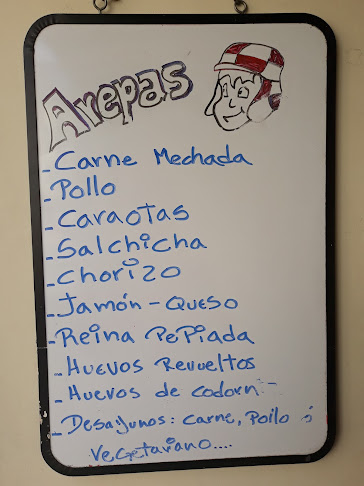 Arepas
- Carne Mechada
- Pollo
- Caraotas
- Salchicha
- Chorizo
- Jamón - Queso
- Reina PePiada
- Huevos Revueltos
- Huevos de codorn
- Desayunos: carne, Pollo ó
Vegetariano....